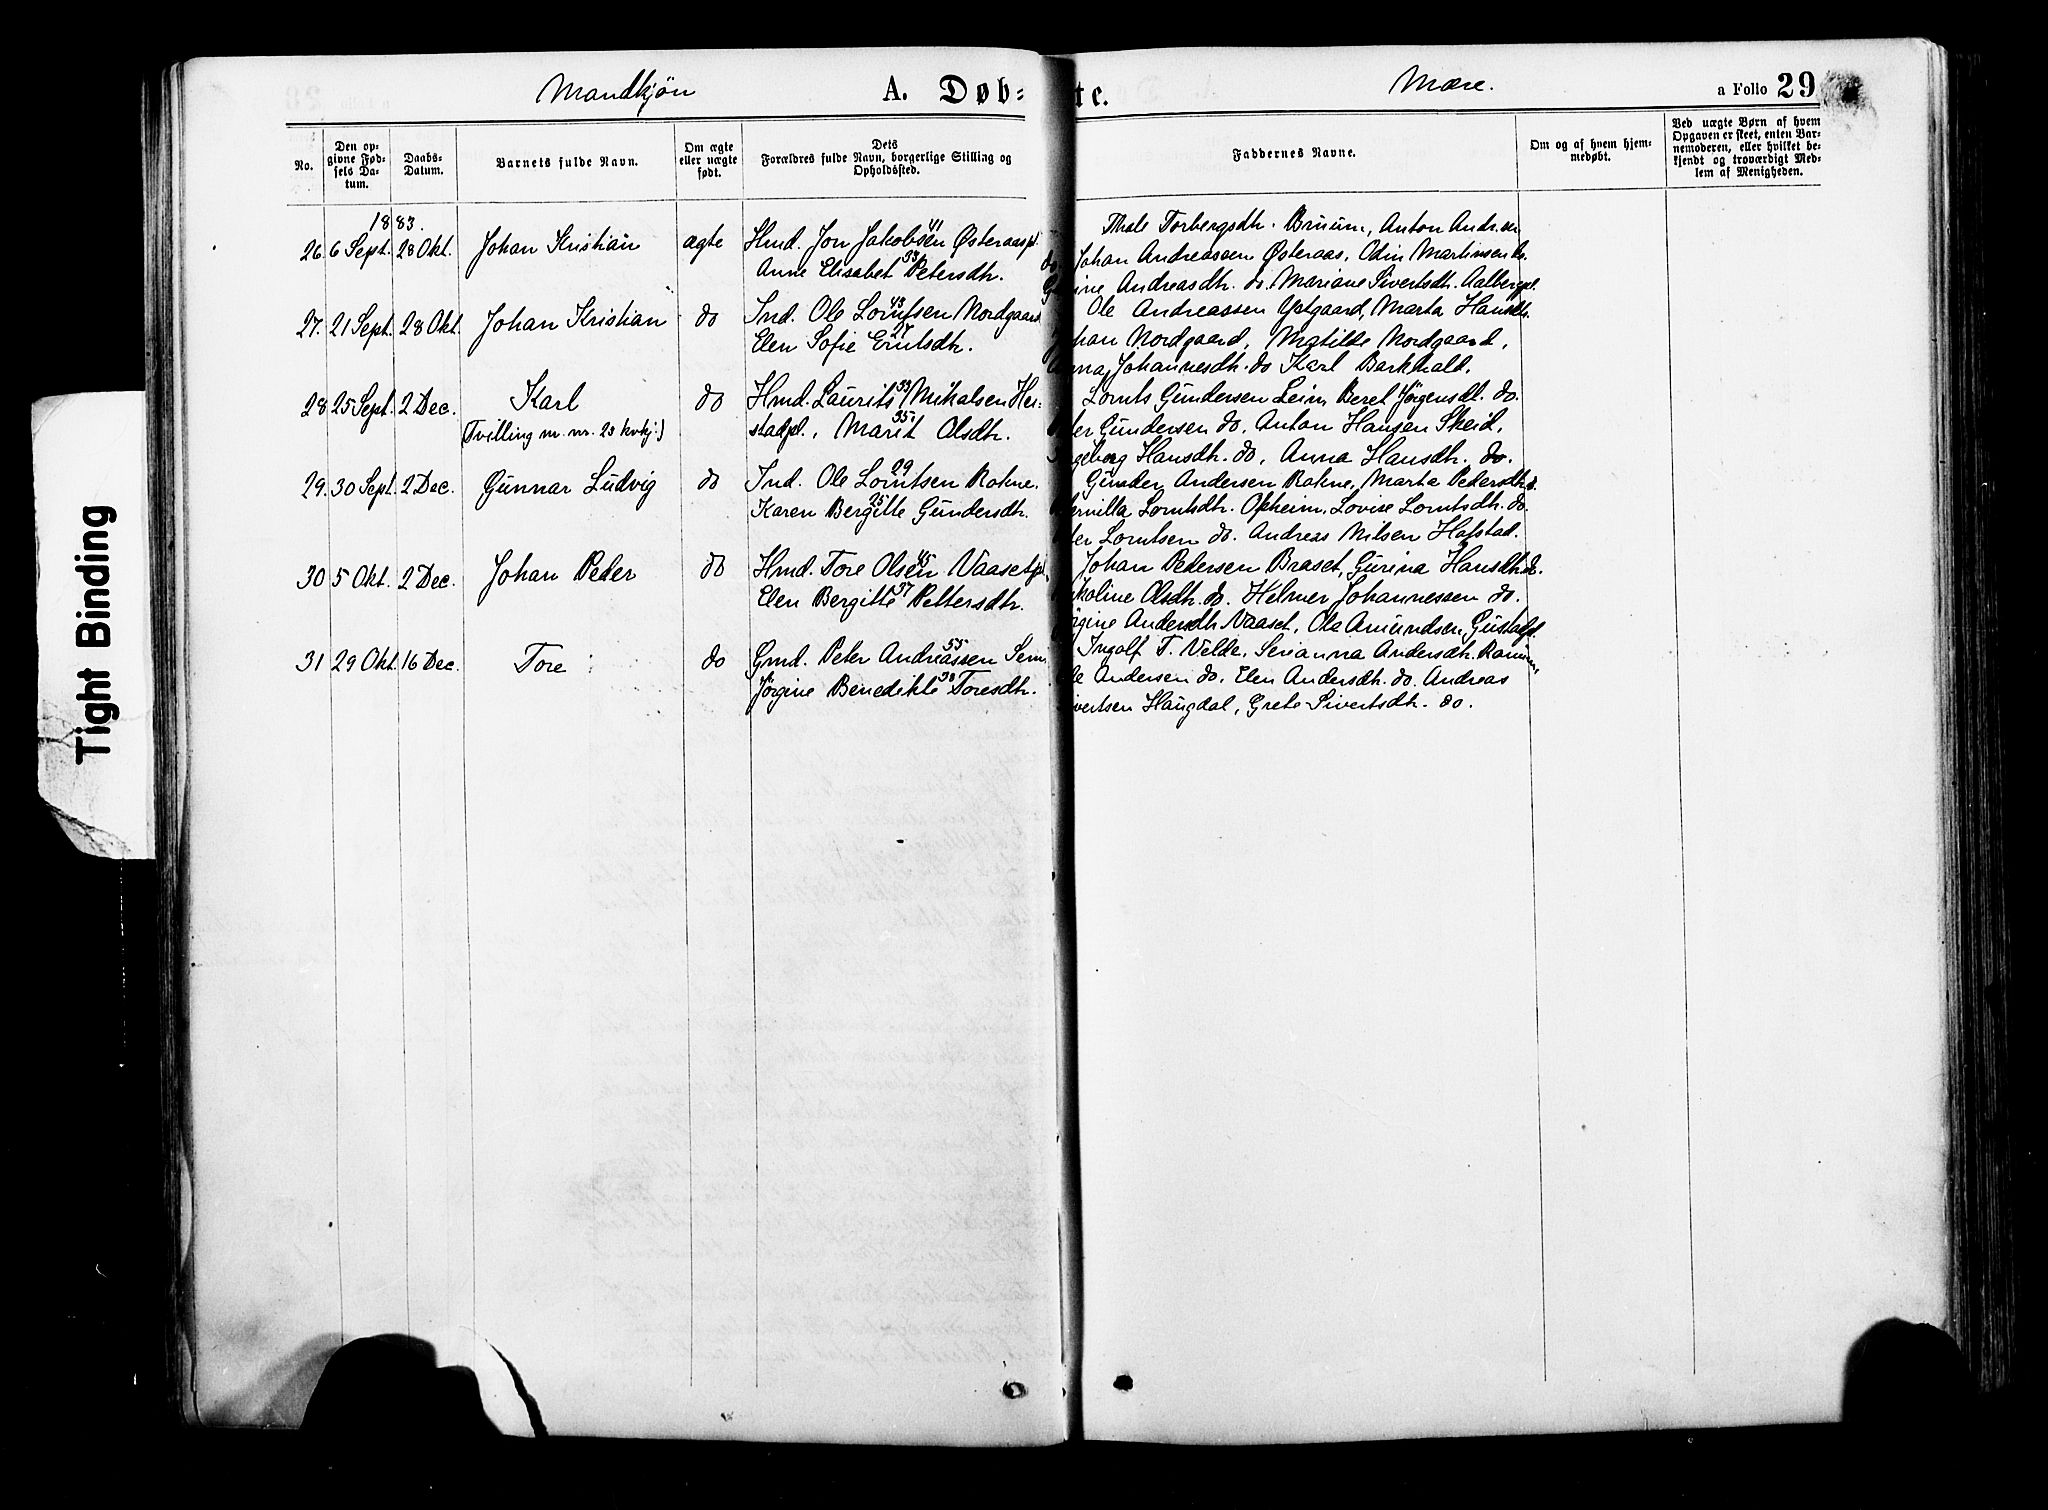 Mandkjön
A. Døb=
te.
Mære.
a Folio 29
No.
Den op-
givne Fød-
sels Da-
tum.
Daabs-
Datum.
Barnets fulde Navn.
Om ægte
eller uægte
født.
Dets
Forældres fulde Navn, borgerlige Stilling og
Opholdssted.
Faddernes Navne.
Om og af hvem hjem-
medøbt.
Ved uægte Børn af hvem
Opgaven er skeet, enten Bar-
nemoderen, eller hvilket be-
kjendt og troværdigt Med-
lem af Menigheden.
1883.
26. 6 Sept. 28 Okt. Johan Kristian ægte Hmd. Jon Jakobsen 41 Østeraaspl.
Anne Elisabet 33 Petersdtr.
Thale Torbergsdtr. Bruum, Anton Andersen
do. Johan Andreassen Østeraas, Odin Martinsen do.
Andreasdtr. do. Mariane Sivertsdtr. Aalbergpl.
27. 21 Sept. 28 Okt. Johan Kristian do Ind. Ole Lorntsen 43 Nordgaard
Elen Sofie Erntsdtr. 27
Ole Andreassen Ystgaard, Marta Hansdtr.
Johan Nordgaard, Matilde Nordgaard,
Anna Johannesdtr. do Karl Barkhald.
28 25 Sept. 2 Dec. Karl do Hmd. Laurits 33 Mikalsen Hei=
(Tvilling m. nr. 23 kvkj:) stadpl., Marit 35 Olsdtr.
Lornts Gundersen Lein, Beret Jörgensdt. do.
Peter Gundersen do. Anton Hansen Skeid,
Ingeborg Hansdtr. do, Anna Hansdtr. do.
29. 30 Sept. 2 Dec. Gunnar Ludvig do Ind. Ole Lorntsen 29 Rokne.
Karen Bergitte 25 Gundersdtr.
Gunder Andersen Rokne, Marta Petersdtr. do.
Lorntsdtr. Opheim, Lovise Lorntsdtr. do.
Peter Lorntsen do. Andreas Nilsen Hafstad.
30 5 Okt. 2 Dec. Johan Peder do Hmd. Tore Olsen 45 Vaasetpl.
Elen Bergitte 37 Pettersdtr.
Johan Pedersen Braset, Gurina Hansdtr. do.
Nikoline Olsdtr. do. Helmer Johannessen do.
Jörgine Andersdtr. Vaaset, Ole Amundsen Gustadpl.
31 29 Okt. 16 Dec. Tore do Gmd. Peter Andreassen 55 Sem,
Jörgine Benedikte 38 Toresdtr.
Ingolf T. Velde, Serianna Andersdtr.
Ole Andersen do, Elen Andersdtr. do. Andreas
Sivertsen Haugdal, Grete Sivertsdtr. do.
Tight Binding